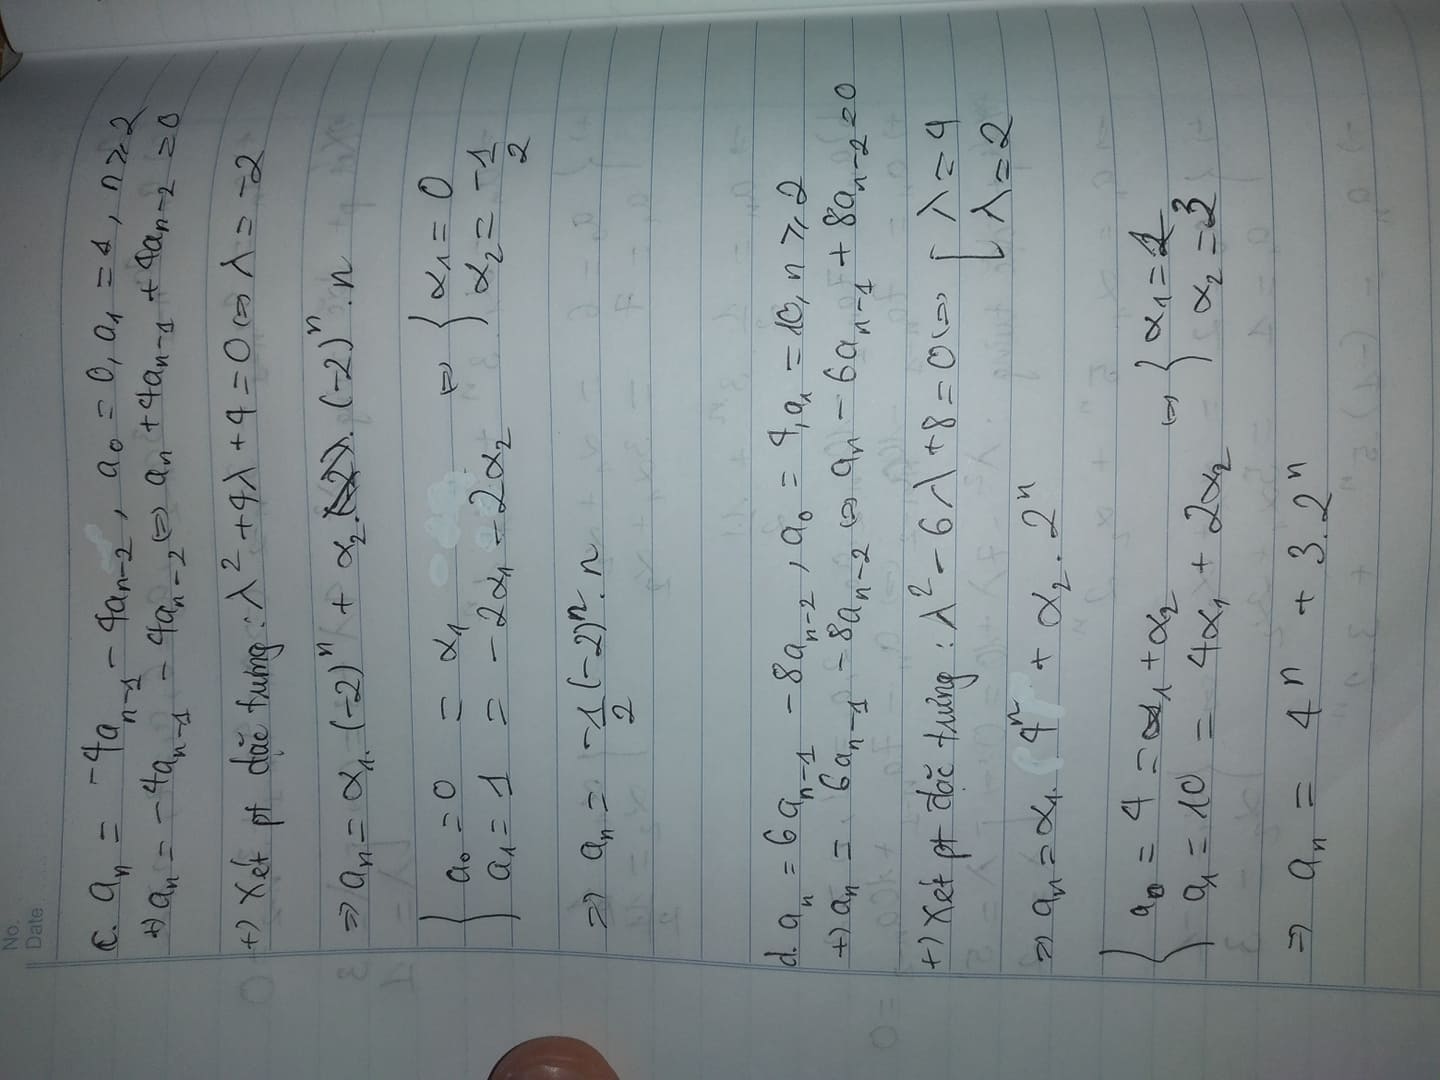 No.
Date
c. aₙ = -4aₙ₋₁ - 4aₙ₋₂, a₀ = 0, a₁ = 1, n ≥ 2
+) aₙ = -4aₙ₋₁ - 4aₙ₋₂ ⇔ aₙ + 4aₙ₋₁ + 4aₙ₋₂ = 0
+) Xét pt đặc trưng: λ² + 4λ + 4 = 0 ⇔ λ = -2
⇒ aₙ = α₁.(-2)ⁿ + α₂.(-2)ⁿ.n
{ a₀ = 0 = α₁ ⇔ { α₁ = 0
a₁ = 1 = -2α₁ - 2α₂ α₂ = -1/2
⇒ aₙ = -1/2 (-2)ⁿ.n
d. aₙ = 6aₙ₋₁ - 8aₙ₋₂, a₀ = 4, a₁ = 10, n ≥ 2
+) aₙ = 6aₙ₋₁ - 8aₙ₋₂ ⇔ aₙ - 6aₙ₋₁ + 8aₙ₋₂ = 0
+) Xét pt đặc trưng: λ² - 6λ + 8 = 0 ⇔ [ λ = 4
[ λ = 2
⇒ aₙ = α₁.4ⁿ + α₂.2ⁿ
{ a₀ = 4 = α₁ + α₂ ⇔ { α₁ = 1
a₁ = 10 = 4α₁ + 2α₂ α₂ = 3
⇒ aₙ = 4ⁿ + 3.2ⁿ